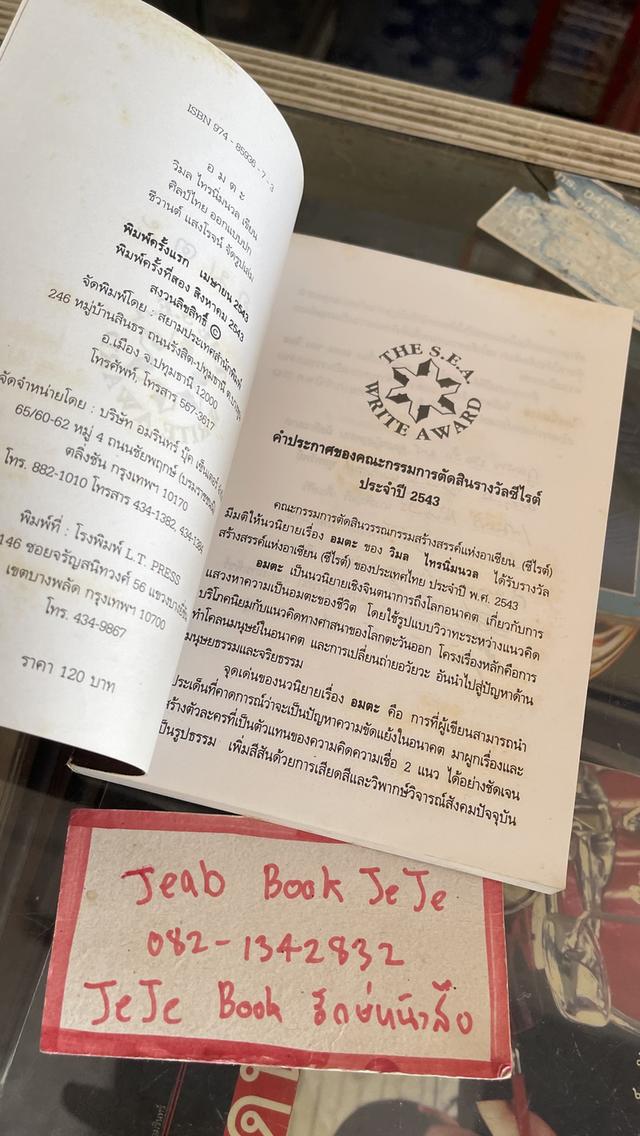 ISBN 974 - 85936 - 7 - 3
อ ม ต ะ
วิมล ไทรนิ่มนวล เขียน
ศิลป์ไทย ออกแบบปก
ชีวานต์ แสงโรจน์ จัดรูปเล่ม
พิมพ์ครั้งแรก เมษายน 2543
พิมพ์ครั้งที่สอง สิงหาคม 2543
สงวนลิขสิทธิ์ ©
จัดพิมพ์โดย : สยามประเทศสำนักพิมพ์
246 หมู่บ้านสินธร ถนนรังสิต-ปทุมธานี
อ.เมือง จ.ปทุมธานี 12000
โทรศัพท์, โทรสาร 567-3617
จัดจำหน่ายโดย : บริษัท อมรินทร์ บุ๊ค เซ็นเตอร์
65/60-62 หมู่ 4 ถนนชัยพฤกษ์ (บรมราชชนนี)
ตลิ่งชัน กรุงเทพฯ 10170
โทร. 882-1010 โทรสาร 434-1382,
พิมพ์ที่ : โรงพิมพ์ L.T. PRESS
146 ซอยจรัญสนิทวงศ์ 56 แขวงบางยี่ขัน
เขตบางพลัด กรุงเทพฯ 10700
โทร. 434-9867
ราคา 120 บาท
THE S.E.A.
WRITE AWARD
คำประกาศของคณะกรรมการตัดสินรางวัลซีไรต์
ประจำปี 2543
คณะกรรมการตัดสินวรรณกรรมสร้างสรรค์แห่งอาเซียน (ซีไรต์)
มีมติให้นวนิยายเรื่อง อมตะ ของ วิมล ไทรนิ่มนวล ได้รับรางวัล
สร้างสรรค์แห่งอาเซียน (ซีไรต์) ของประเทศไทย ประจำปี พ.ศ. 2543
อมตะ เป็นนวนิยายเชิงจินตนาการถึงโลกอนาคต เกี่ยวกับการ
แสวงหาความเป็นอมตะของชีวิต โดยใช้รูปแบบวิวาทะระหว่างแนวคิด
บริโภคนิยมกับแนวคิดทางศาสนาของโลกตะวันออก โครงเรื่องหลักคือการ
ทำโคลนมนุษย์ในอนาคต และการเปลี่ยนถ่ายอวัยวะ อันนำไปสู่ปัญหาด้าน
มนุษยธรรมและจริยธรรม
จุดเด่นของนวนิยายเรื่อง อมตะ คือ การที่ผู้เขียนสามารถนำ
ประเด็นที่คาดการณ์ว่าจะเป็นปัญหาความขัดแย้งในอนาคต มาผูกเรื่องและ
สร้างตัวละครที่เป็นตัวแทนของความคิดความเชื่อ 2 แนว ได้อย่างชัดเจน
เป็นรูปธรรม เพิ่มสีสันด้วยการเสียดสีและวิพากษ์วิจารณ์สังคมปัจจุบัน
Jeab Book JeJe
082-1342832
JeJe Book รักษ์หนังสือ